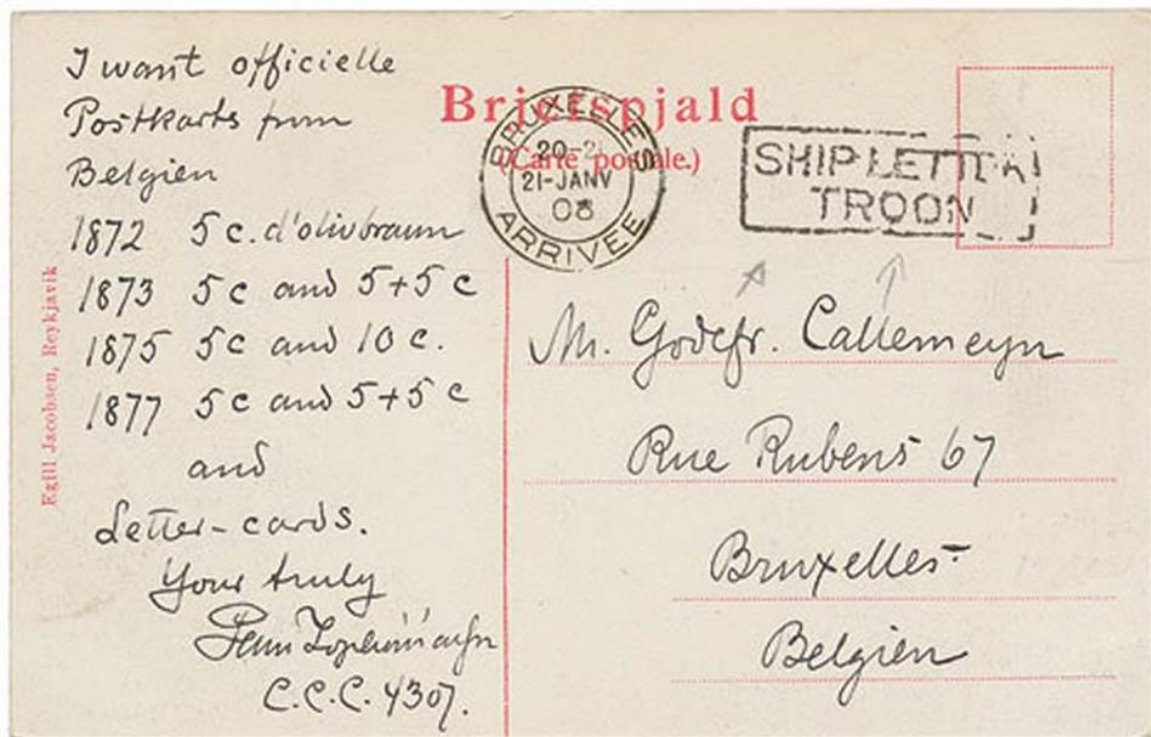 I want officielle
Postkarts from
Belgien
1872 5 c. d'olivbraun
1873 5 c and 5+5 c
1875 5 c and 10 c.
1877 5 c and 5+5 c
and
Letter-cards.
Your truly
C.C.C. 4307.
Egill Jacobsen, Reykjavik
Brjefspjald
(Carte postale.)
BRUXELLES
20-21
21-JANV
08
ARRIVÉE
SHIP LETTER
TROON
Mr. Godefr. Callemeyn
Rue Rubens 67
Bruxelles-
Belgien